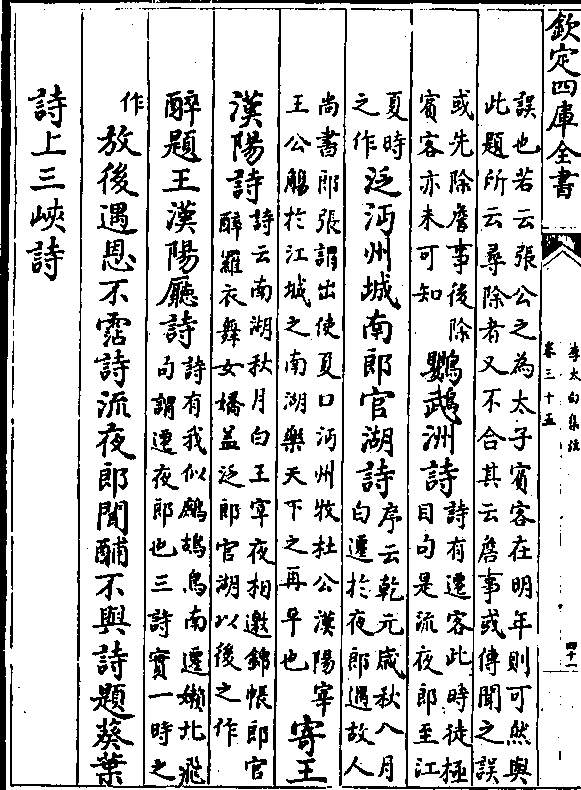 欽定四庫全書
李太白集注
卷三十五
四十一
誤也若云張公之為太子賓客在明年則可然與
此題所云尋除者又不合其云詹事或傳聞之誤
或先除詹事後除
賓客亦未可知
鸚鵡洲詩
詩有遷客此時徒極
目句是流夜郎至江
夏時
之作
泛沔州城南郎官湖詩
序云乾元歲秋八月
白遷於夜郎遇故人
尚書郎張謂出使夏口沔州牧杜公漢陽宰
王公觴於江城之南湖樂天下之再平也
寄王
漢陽詩
詩云南湖秋月白王宰夜相邀錦帳郎官
醉羅衣舞女嬌蓋泛郎官湖以後之作
醉題王漢陽廳詩
詩有我似鷓鴣鳥南遷嬾北飛
句謂遷夜郎也三詩實一時之
作
放後遇恩不霑詩流夜郎聞酺不與詩題葵葉
詩上三峽詩